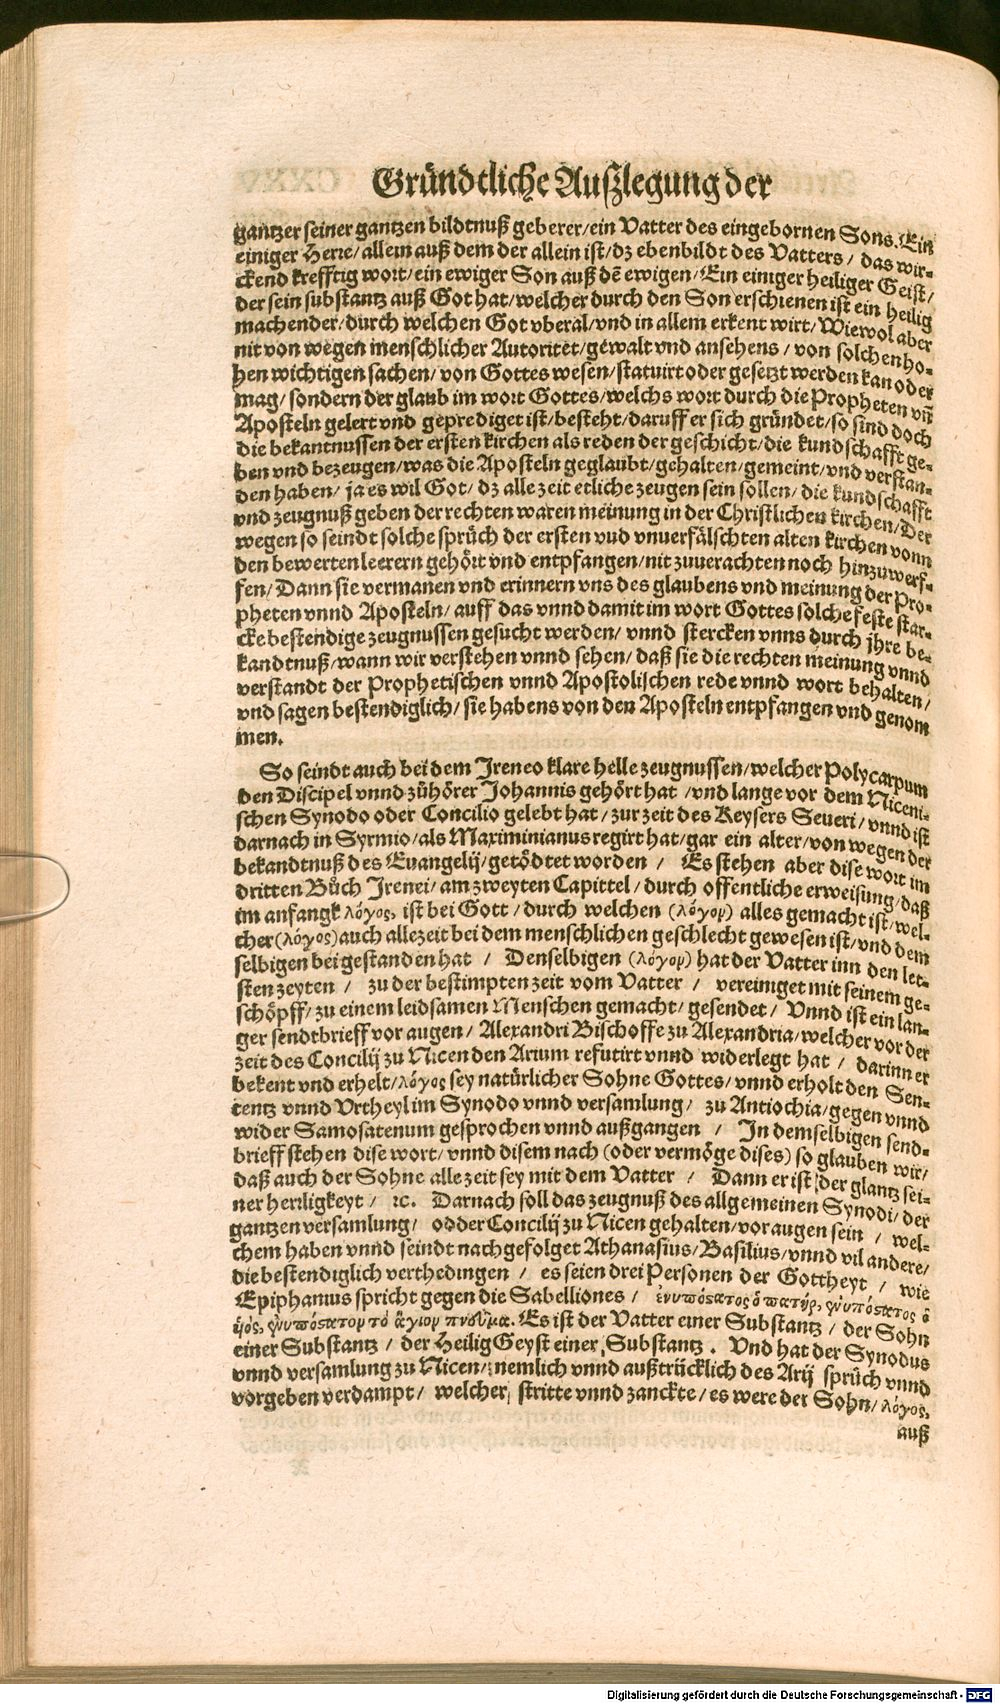 Gründtliche Außlegung der
gantzer seiner gantzen bildtnuß geberer/ein Vatter des eingebornen Sons. Ein
einiger Herre/allein auß dem der allein ist/dz ebenbildt des Vatters/ das wir-
ckend krefftig wort/ein ewiger Son auß dē ewigen/Ein einiger heiliger Geist/
der sein substantz auß Got hat/welcher durch den Son erschienen ist ein heilig
machender/durch welchen Got vberal/vnd in allem erkent wirt/Wiewol aber
nit von wegen menschlicher Autoritet/gewalt vnd ansehens/von solchen ho-
hen wichtigen sachen/von Gottes wesen/statuirt oder gesetzt werden kan oder
mag/sondern der glaub im wort Gottes/welchs wort durch die Propheten vn̄
Aposteln gelert vnd geprediget ist/besteht/daruff er sich gründet/so sind doch
die bekantnussen der ersten kirchen als reden der geschicht/die kundschafft ge-
ben vnd bezeugen/was die Aposteln geglaubt/gehalten/gemeint/vnd verstan-
den haben/ ja es wil Got/dz alle zeit etliche zeugen sein sollen/die kundschafft
vnd zeugnuß geben der rechten waren meinung in der Christlichen kirchen/Der
wegen so seindt solche sprüch der ersten vud vnuerfälschten alten kirchen vonn
den bewerten leerern gehört vnd entpfangen/nit zuuerachten noch hinzuwerf-
fen/Dann sie vermanen vnd erinnern vns des glaubens vnd meinung der Pro-
pheten vnnd Aposteln/auff das vnnd damit im wort Gottes solche feste star-
cke bestendige zeugnussen gesucht werden/ vnnd stercken vnns durch jhre be-
kandtnuß/wann wir verstehen vnnd sehen/daß sie die rechten meinung vnnd
verstandt der Prophetischen vnnd Apostolischen rede vnnd wort behalten/
vnd sagen bestendiglich/sie habens von den Aposteln entpfangen vnd genom
men.
So seindt auch bei dem Ireneo klare helle zeugnussen/welcher Polycarpum
den Discipel vnnd zühörer Johannis gehört hat/vnd lange vor dem Niceni-
schen Synodo oder Concilio gelebt hat/zur zeit des Keysers Seueri/vnnd ist
darnach in Syrmio/als Maximinianus regirt hat/gar ein alter/von wegen der
bekandtnuß des Euangelij/getödtet worden/ Es stehen aber dise wort im
dritten Büch Irenei/am zweyten Capittel/durch offentliche erweisung/daß
im anfangk λόγος, ist bei Gott/durch welchen (λόγορ) alles gemacht ist/wel-
cher (λόγος) auch allezeit bei dem menschlichen geschlecht gewesen ist/vnd dem
selbigen beigestanden hat/ Denselbigen (λόγορ) hat der Vatter inn den let-
sten zeyten/ zu der bestimpten zeit vom Vatter/ vereiniget mit seinem ge-
schöpff/zu einem leidsamen Menschen gemacht/gesendet/ Vnnd ist ein lan-
ger sendtbrieff vor augen/Alexandri Bischoffe zu Alexandria/welcher vor der
zeit des Concilij zu Nicen den Arium refutirt vnnd widerlegt hat/ darinn er
bekent vnd erhelt/λόγος sey natürlicher Sohne Gottes/vnnd erholt den Sen-
tentz vnnd Vrtheyl im Synodo vnnd versamlung/ zu Antiochia/gegen vnnd
wider Samosatenum gesprochen vnnd außgangen/ In demselbigen send-
brieff stehen dise wort/vnnd disem nach (oder vermöge dises) so glauben wir/
daß auch der Sohne alle zeit sey mit dem Vatter/ Dann er ist der glantz sei-
ner herrligkeyt/ ꝛc. Darnach soll das zeugnuß des allgemeinen Synodi/der
gantzen versamlung/ odder Concilij zu Nicen gehalten/vor augen sein/ wel-
chem haben vnnd seindt nachgefolget Athanasius/Basilius/vnnd vil andere/
die bestendiglich verthedingen/ es seien drei Personen der Gottheyt/ wie
Epiphanius spricht gegen die Sabelliones/ ἐνυπόστατος ὁ πατήρ, ἐνυπόστατος ὁ
ὑιός, ἐνυπόστατορ τὸ ἅγιορ πνεῦμα. Es ist der Vatter einer Substantz/ der Sohn
einer Substantz/ der Heilig Geyst einer Substantz. Vnd hat der Synodus
vnnd versamlung zu Nicen/nemlich vnnd außtrücklich des Arij sprüch vnnd
vorgeben verdampt/ welcher stritte vnnd zanckte/es were der Sohn/λόγος,
auß
Digitalisierung gefördert durch die Deutsche Forschungsgemeinschaft - DFG